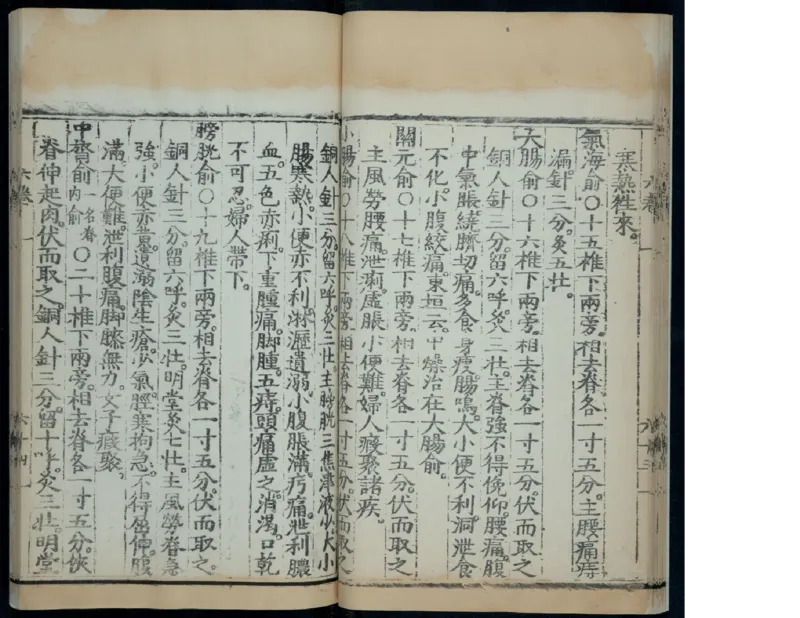 寒熱往來。
氣海俞〇十五椎下兩旁。相去脊各一寸五分。主腰痛痔
漏。針三分。灸五壯。
大腸俞〇十六椎下兩旁。相去脊各一寸五分。伏而取之
銅人針三分。留六呼。灸三壯。主脊強不得俛仰腰痛。腹
中氣脹繞臍切痛。多食身瘦腸鳴。大小便不利洞泄食
不化小腹絞痛。東垣云。中燥治在大腸俞。
關元俞〇十七椎下兩旁。相去脊各一寸五分。伏而取之
主風勞腰痛。泄痢虛脹小便難。婦人瘕聚諸疾。
小腸俞〇十八椎下兩旁。相去脊各一寸五分。伏而取之
銅人針三分。留六呼。灸三壯。主膀胱三焦津液少大小
腸寒熱。小便赤不利。淋瀝遺溺。小腹脹滿。疞痛。泄利膿
血。五色赤痢。下重腫痛。脚腫。五痔。頭痛虛乏。消渴。口乾
不可忍。婦人帶下。
膀胱俞〇十九椎下兩旁。相去脊各一寸五分。伏而取之。
銅人針三分。留六呼。灸三壯。明堂灸七壯。主風勞脊急
強。小便赤黃。遺溺。陰生瘡。少氣。脛寒拘急。不得屈伸。腹
滿。大便難。泄利腹痛。脚膝無力。女子瘕聚。
中膂俞一名脊內俞〇二十椎下兩旁。相去脊各一寸五分。俠
脊伸起肉。伏而取之。銅人針三分。留十呼。灸三壯。明堂